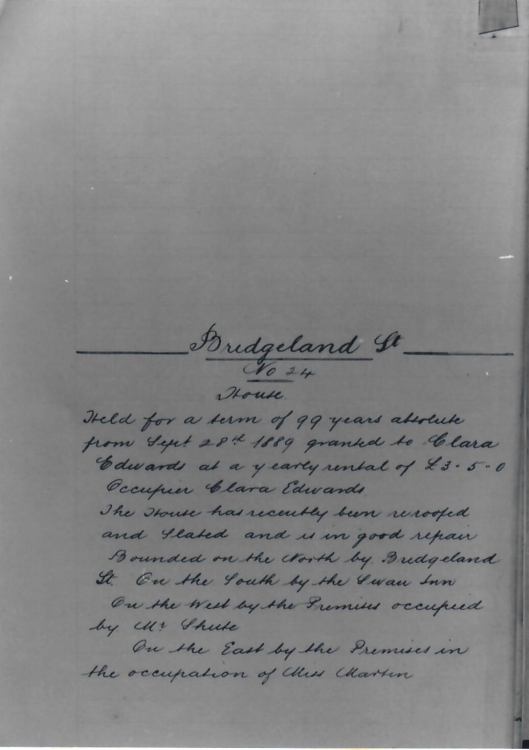 Bridgeland St
No 24
House
Held for a term of 99 years absolute
from Sept 28th 1889 granted to Clara
Edwards at a yearly rental of £3-5-0
Occupier Clara Edwards
The House has recently been reroofed
and Slated and is in good repair
Bounded on the North by Bridgeland
St. On the South by the Swan Inn
On the West by the Premises occupied
by Mr Shute
On the East by the Premises in
the occupation of Miss Martin